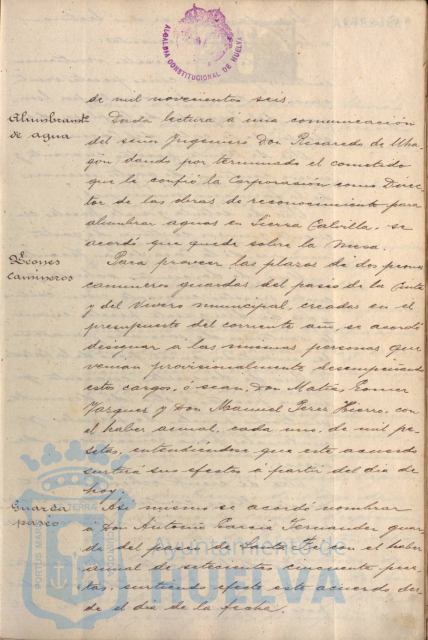 ALCALDIA CONSTITUCIONAL DE HUELVA
de mil novecientos seis.
Alumbramto de agua
Dada lectura á una comunicación
del señor Ingeniero Don Ricardo de Uha-
gón, dando por terminado el cometido
que le confió la Corporación como Direc-
tor de las obras de reconocimiento para
alumbrar aguas en Sierra Calvilla, se
acordó que quede sobre la mesa.
Peones camineros
Para proveer las plazas de dos peones
camineros guardas del paseo de la Cinta
y del Vivero municipal, creadas en el
presupuesto del corriente año, se acordó
designar a las mismas personas que
venian provisionalmente desempeñando
estos cargos, ó sean, Don Matías Gomez
Vazquez y Don Manuel Perez Hierro, con
el haber anual, cada uno, de mil pe-
setas, entendiéndose que este acuerdo
surtirá sus efectos á partir del dia de
hoy.
Guarda paseo
Asi mismo se acordó nombrar
á Don Antonio Garcia Fernandez guar-
da del paseo de Santa Fe, con el haber
anual de setecientas cincuenta pese-
tas, surtiendo efecto este acuerdo des-
de el dia de la fecha.
PORTUS MARIS
Ayuntamiento de
HUELVA